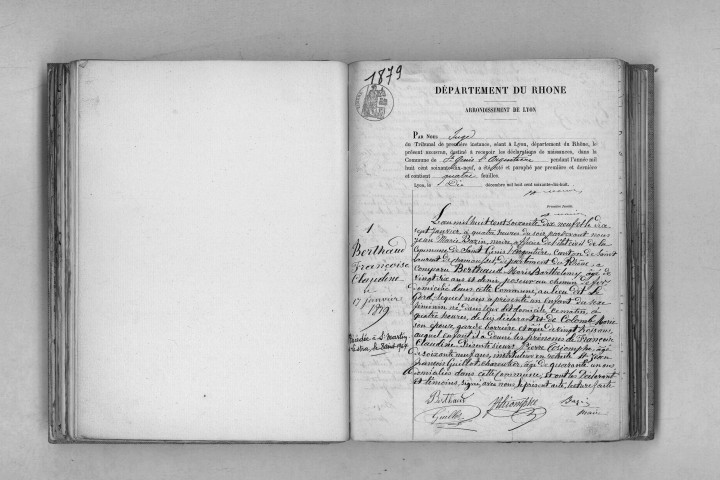 1879
DÉPARTEMENT DU RHONE
ARRONDISSEMENT DE LYON
PAR NOUS Juge
du Tribunal de première instance, séant à Lyon, département du Rhône, le
présent REGISTRE, destiné à recevoir les déclarations de naissances, dans la
Commune de St Genis l'Argentière pendant l'année mil
huit cent soixante-dix-neuf, a été coté et paraphé par première et dernière
et contient quatre feuilles.
Lyon, le décembre mil huit cent soixante-dix-huit.
Premier feuillet.
1
Berthaud
Françoise
Claudine
le
17 janvier
1879
Décédée à St Martin
L'an mil huit cent soixante dix neuf et le dix
sept janvier à quatre heures du soir pardevant nous
Jean Marie Bazin, maire, officier de l'état civil de la
Commune de Saint Genis l'Argentière, canton de Saint
Laurent de Chamousset, département du Rhône, a
comparu Berthaud Marie Barthelemy, âgé de
vingt six ans et demi, poseur au chemin de fer
domicilié dans cette Commune, au lieu dit le
Gord, lequel nous a présenté un enfant du sexe
féminin né dans leur dit domicile ce matin, à
quatre heures, de lui déclarant et de Colomb
son épouse, garde barrière, âgée de vingt trois ans,
auquel enfant il a donné les prénoms de Françoise
Claudine. Présents sieurs Pierre âgé
de soixante neuf ans, instituteur en retraite et Jean
François Guillot, charcutier, âgé de quarante un ans
domiciliés dans cette commune, et ont les déclarant
et témoins, signé avec nous le présent acte, lecture faite
Berthaud Bazin
Guillot maire